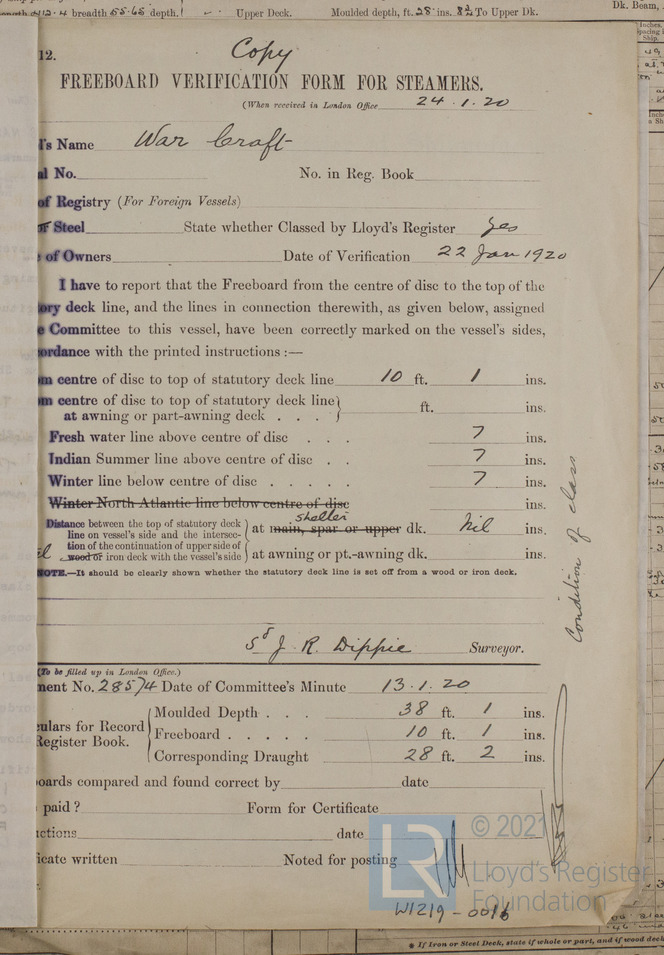 breadth 55.65 depth. Upper Deck. Moulded depth, ft. 28 ins. 8½ To Upper Dk. Dk. Beam,
12. Copy
FREEBOARD VERIFICATION FORM FOR STEAMERS.
(When received in London Office 24.1.20
's Name War Craft
al No. No. in Reg. Book
of Registry (For Foreign Vessels)
or Steel State whether Classed by Lloyd's Register Yes
of Owners Date of Verification 22 Jan 1920
I have to report that the Freeboard from the centre of disc to the top of the
ory deck line, and the lines in connection therewith, as given below, assigned
e Committee to this vessel, have been correctly marked on the vessel's sides,
ordance with the printed instructions :—
m centre of disc to top of statutory deck line 10 ft. 1 ins.
om centre of disc to top of statutory deck line
at awning or part-awning deck . . . ft. ins.
Fresh water line above centre of disc . . . 7 ins.
Indian Summer line above centre of disc . . 7 ins.
Winter line below centre of disc . . . . . 7 ins.
Winter North Atlantic line below centre of disc ins.
shelter
Distance between the top of statutory deck
line on vessel's side and the intersec- at main, spar or upper dk. Nil ins.
tion of the continuation of upper side of
wood or iron deck with the vessel's side at awning or pt.-awning dk. ins.
NOTE.—It should be clearly shown whether the statutory deck line is set off from a wood or iron deck.
Condition of class
Sd J. R. Dippie Surveyor.
(To be filled up in London Office.)
ment No. 28574 Date of Committee's Minute 13.1.20
Moulded Depth . . . 38 ft. 1 ins.
culars for Record
Register Book.
Freeboard . . . . . 10 ft. 1 ins.
Corresponding Draught 28 ft. 2 ins.
oards compared and found correct by date
paid? Form for Certificate
uctions date
icate written Noted for posting
LR
© 2021
Lloyd's Register
Foundation
W1219-0016
* If Iron or Steel Deck, state if whole or part, and if wood deck